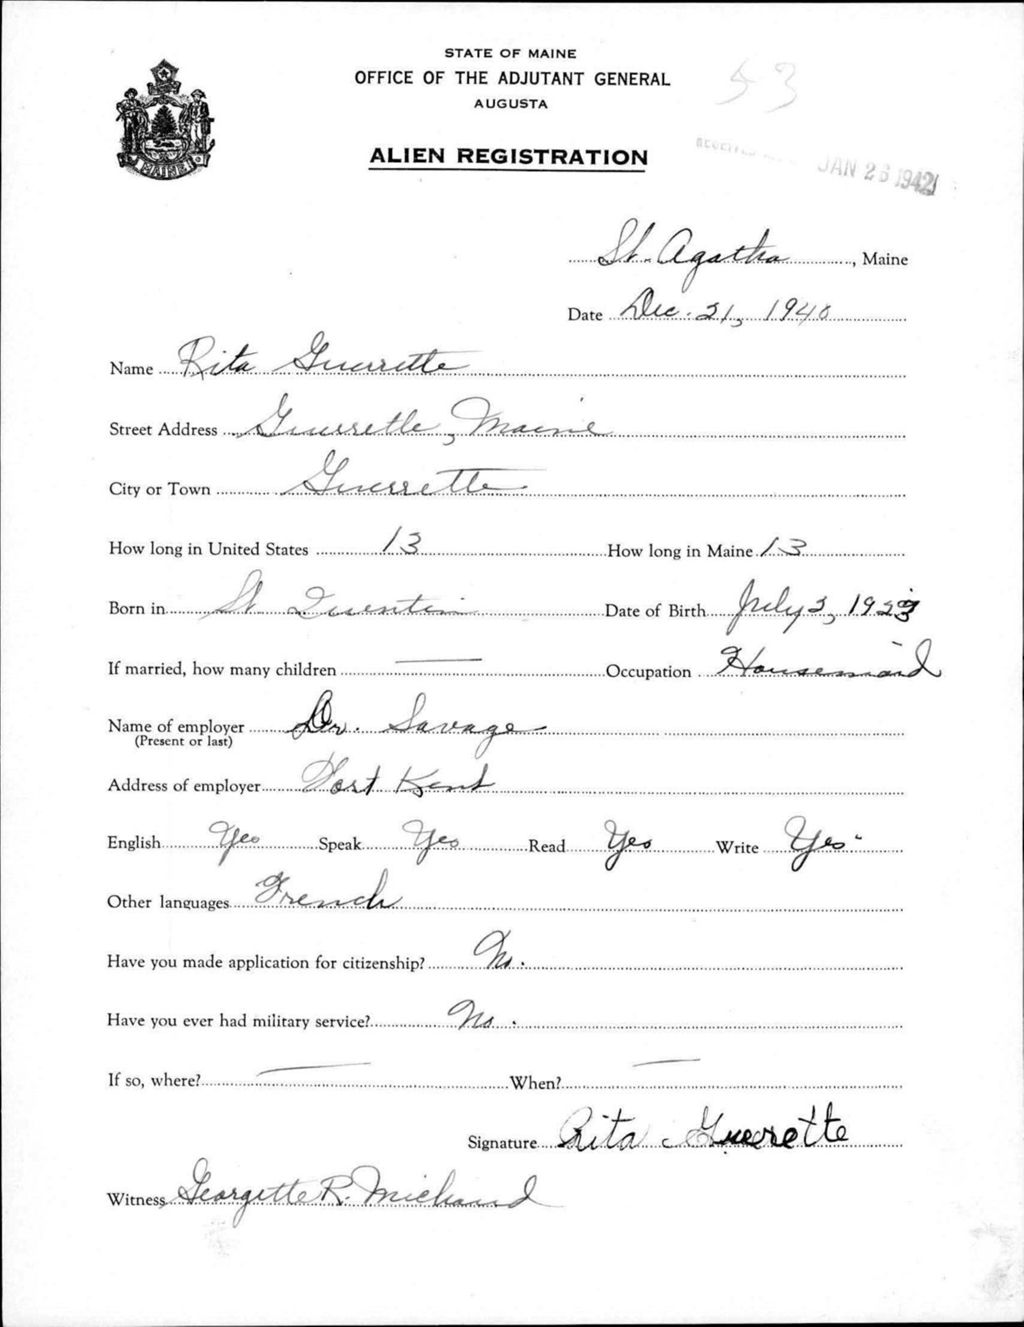 STATE OF MAINE
OFFICE OF THE ADJUTANT GENERAL
AUGUSTA
53
ALIEN REGISTRATION
JAN 26 1942
MAINE
St. Agatha, Maine
Date Dec. 21, 1940
Name Rita Guerrette
Street Address Guerrette, Maine
City or Town Guerrette
How long in United States 13 How long in Maine 13
Born in St. Quentin Date of Birth July 3, 1923
If married, how many children — Occupation Housemaid
Name of employer Dr. Savage
(Present or last)
Address of employer Fort Kent
English Yes Speak Yes Read Yes Write Yes
Other languages French
Have you made application for citizenship? No.
Have you ever had military service? No.
If so, where? — When? —
Signature Rita Guerrette
Witness Georgette R. Michaud